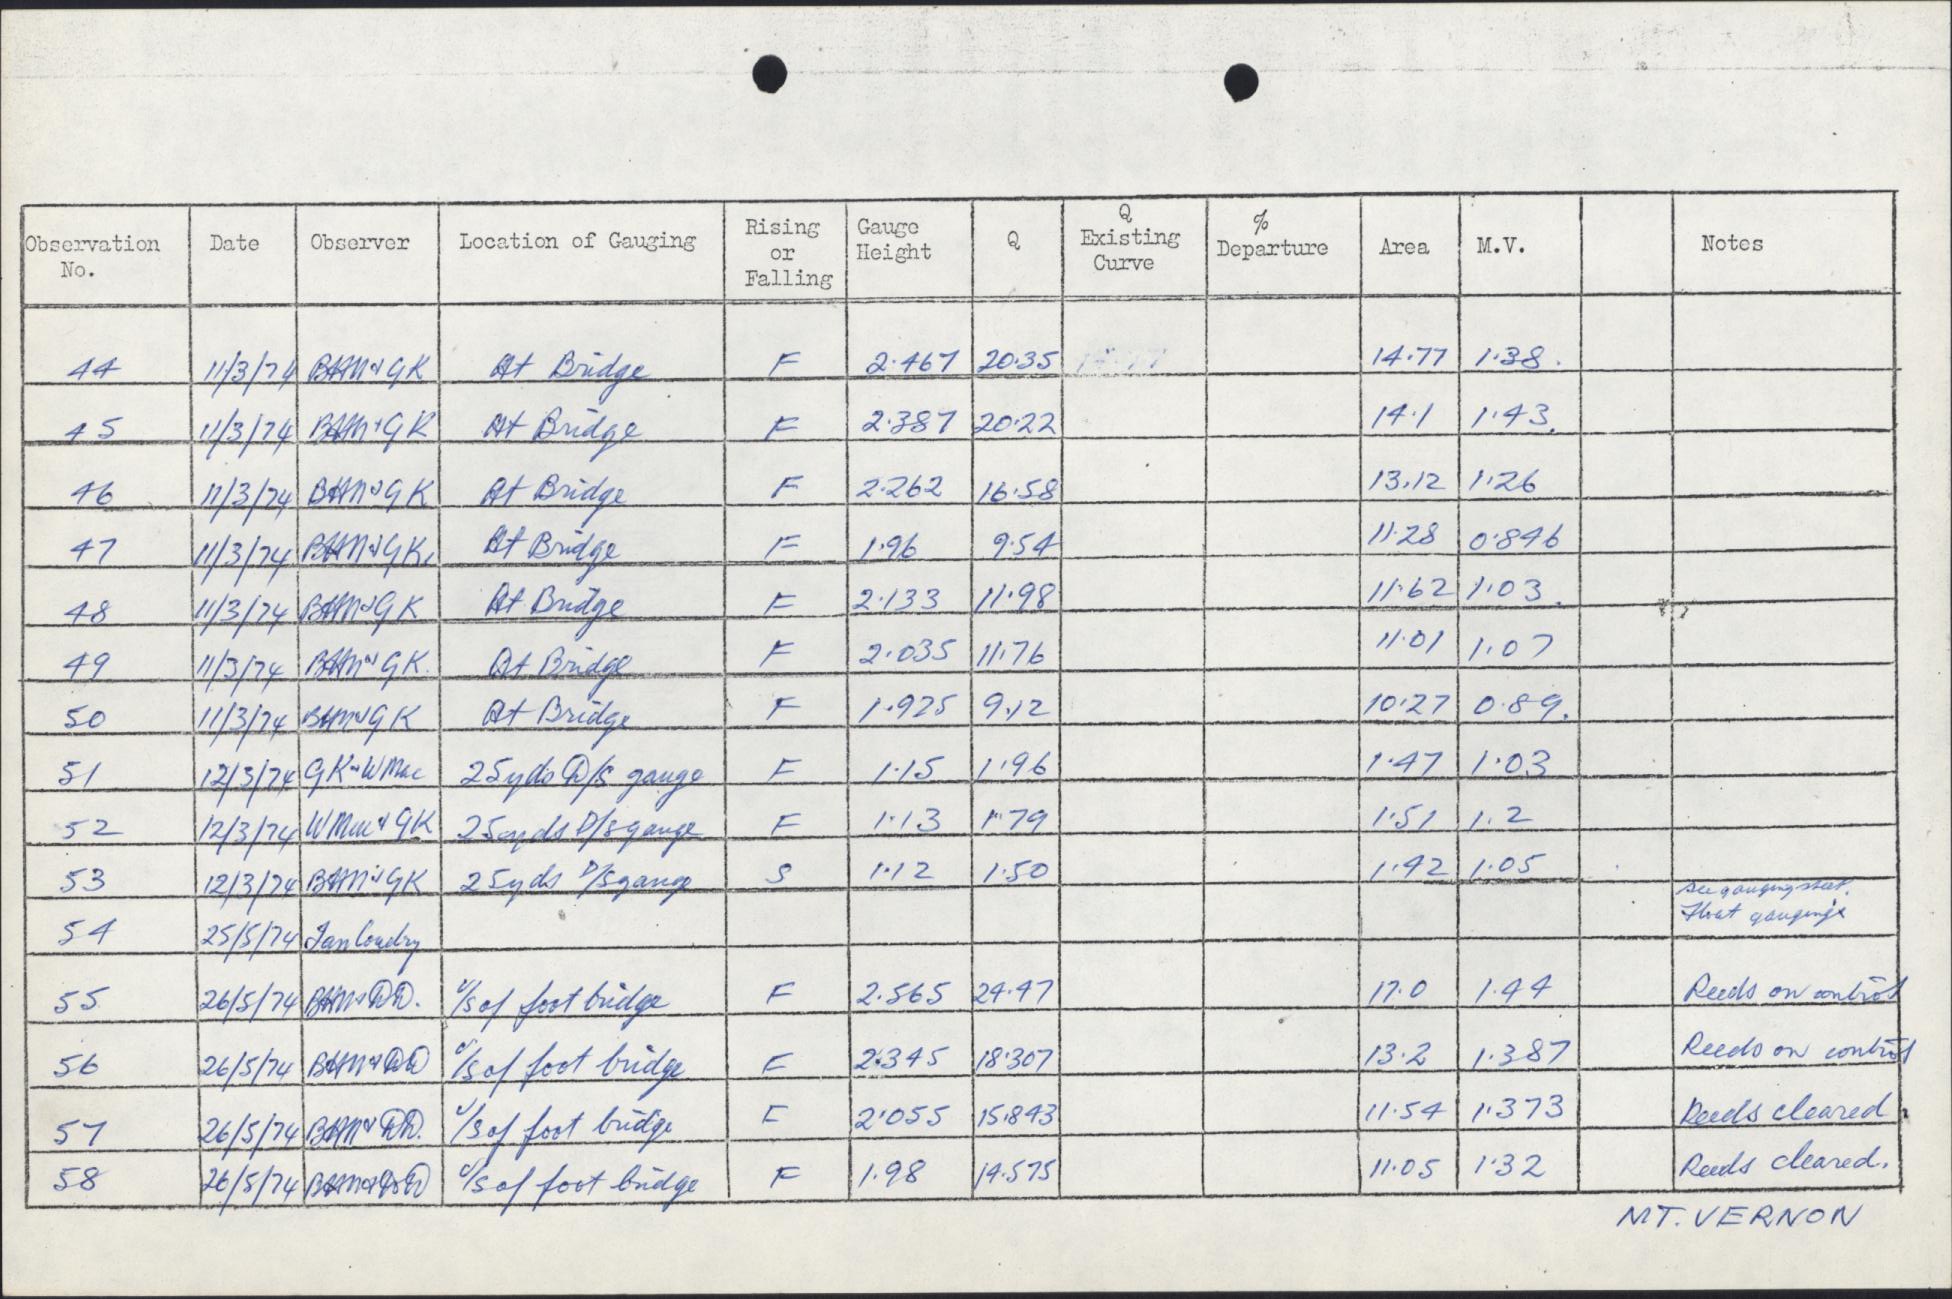 Observation No. Date Observer Location of Gauging Rising or Falling Gauge Height Q Q Existing Curve % Departure Area M.V. Notes
44 11/3/74 BHM & GK At Bridge F 2·467 20·35 14·77 1·38.
45 11/3/74 BHM & GK At Bridge F 2·387 20·22 14·1 1·43.
46 11/3/74 BHM & GK At Bridge F 2·262 16·58 13.12 1·26
47 11/3/74 BHM & GK. At Bridge F 1·96 9·54 11·28 0·846
48 11/3/74 BHM & GK At Bridge F 2·133 11·98 11·62 1·03.
49 11/3/74 BHM & GK. At Bridge F 2·035 11·76 11·01 1·07
50 11/3/74 BHM & GK At Bridge F 1·925 9.12 10·27 0·89.
51 12/3/74 GK & WMac 25yds D/s gauge F 1·15 1·96 1·47 1·03
52 12/3/74 WMac & GK 25yds D/s gauge F 1·13 1·79 1·51 1.2
53 12/3/74 BHM & GK 25yds D/s gauge S 1·12 1·50 1·42 1·05
54 25/5/74 Ian see gauging sheet.
Float gaugings
55 26/5/74 BHM & DD. u/s of foot bridge F 2.565 24·47 17·0 1·44 Reeds on control
56 26/5/74 BHM & DD u/s of foot bridge F 2·345 18·307 13·2 1·387 Reeds on control
57 26/5/74 BHM & DD. u/s of foot bridge F 2·055 15·843 11·54 1·373 Reeds cleared
58 26/5/74 BHM & DD u/s of foot bridge F 1·98 14·575 11·05 1·32 Reeds cleared.
MT. VERNON